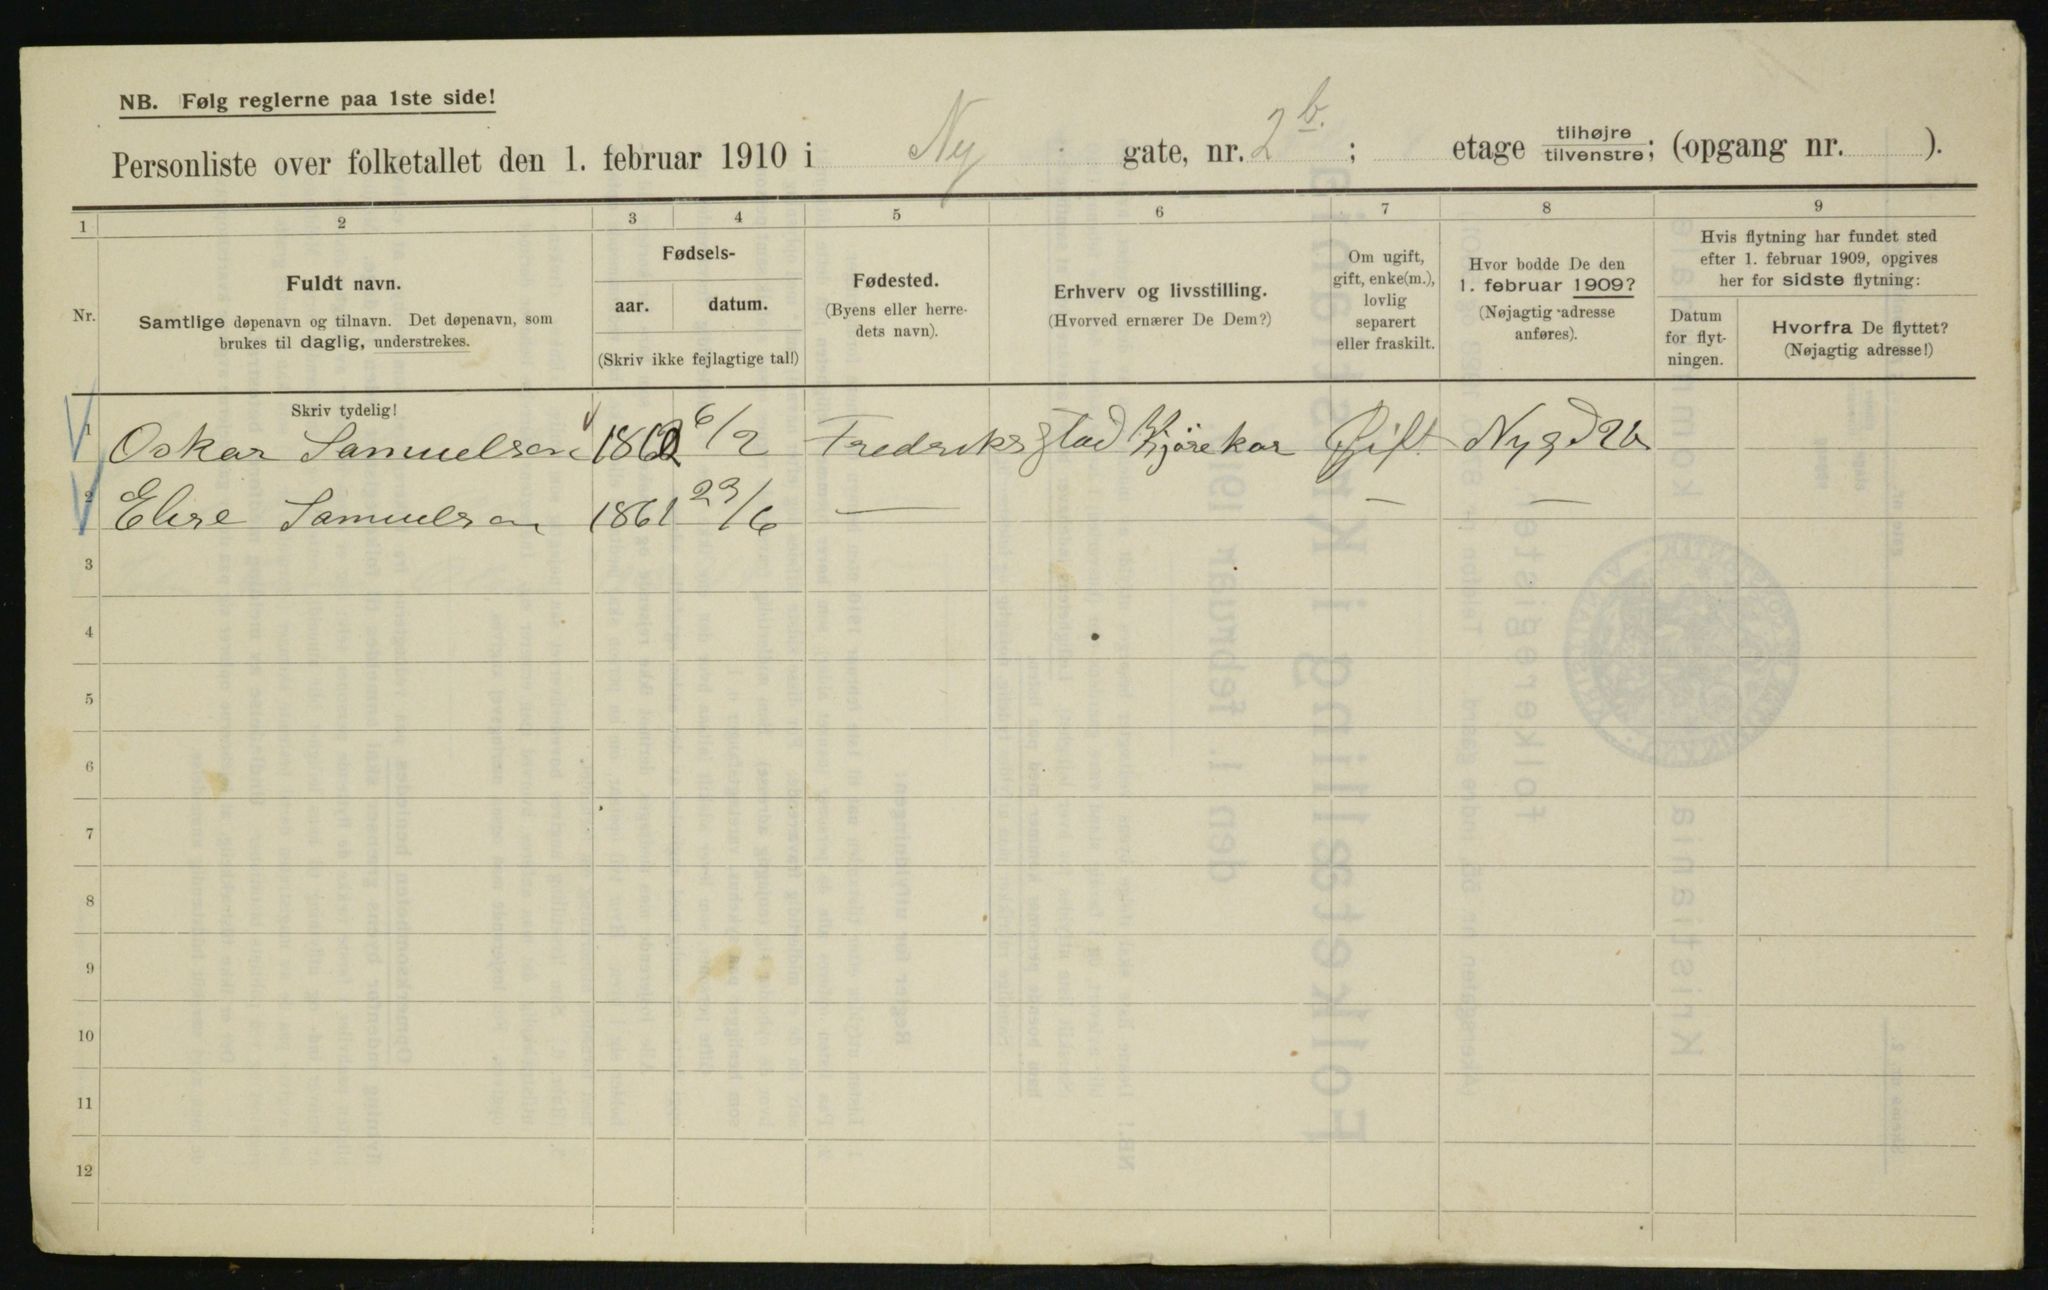 NB. Følg reglerne paa 1ste side!
Personliste over folketallet den 1. februar 1910 i Ny gate, nr. 2 b. ; etage tilhøjre tilvenstre; (opgang nr. ).
1 2 3 4 5 6 7 8 9
Nr.
Fuldt navn.
Samtlige døpenavn og tilnavn. Det døpenavn, som
brukes til daglig, understrekes.
Fødsels-
aar. datum.
(Skriv ikke fejlagtige tal!)
Fødested.
(Byens eller herre-
dets navn).
Erhverv og livsstilling.
(Hvorved ernærer De Dem?)
Om ugift,
gift, enke(m.),
lovlig
separert
eller fraskilt.
Hvor bodde De den
1. februar 1909?
(Nøjagtig adresse
anføres).
Hvis flytning har fundet sted
efter 1. februar 1909, opgives
her for sidste flytning:
Datum
for flyt-
ningen.
Hvorfra De flyttet?
(Nøjagtig adresse!)
Skriv tydelig!
1 Oskar Samuelsen 1862 6/2 Fredriksstad Kjørekar Gift Nygd 2b
2 Elise Samuelsen 1861 23/6 — — —
3
4
5
6
7
8
9
10
11
12